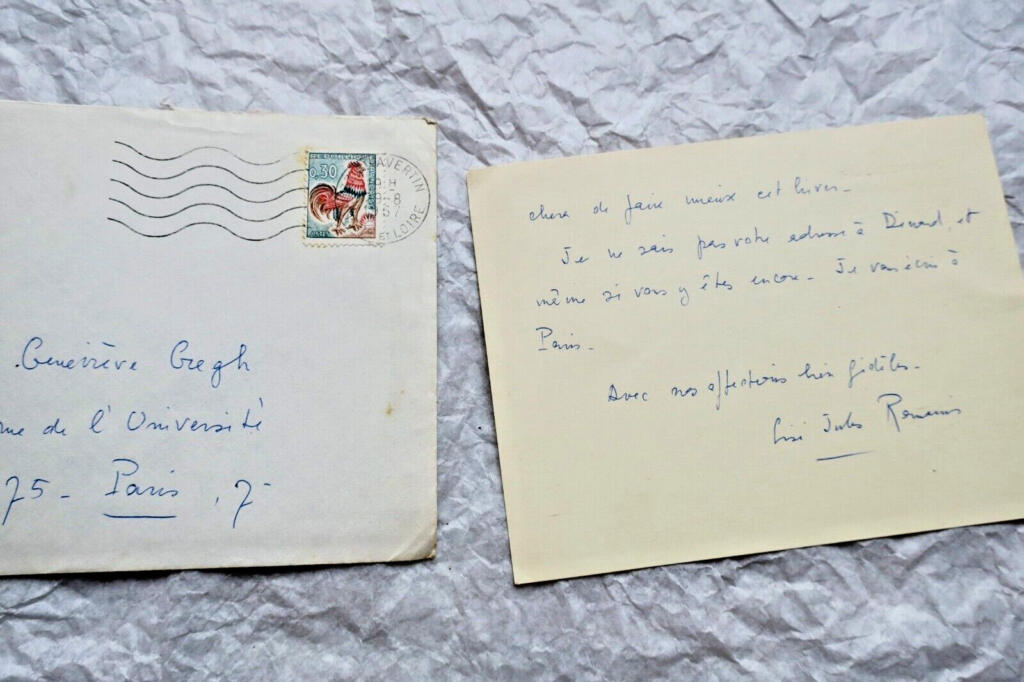 0,30
AVERTIN
ET LOIRE
Geneviève Gregh
rue de l'Université
75 - Paris, 7-
chera de faire mieux cet hiver -
Je ne sais pas votre adresse à Dinard, et
même si vous y êtes encore - Je vous écris à
Paris -
Avec nos affections bien fidèles -
Lise Jules Romains